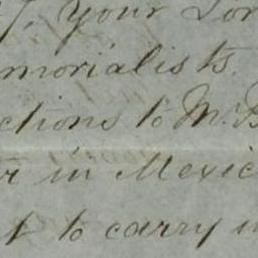 your Lor
morialists.
ctions to Mr. B
r in Mexic
t to carry in